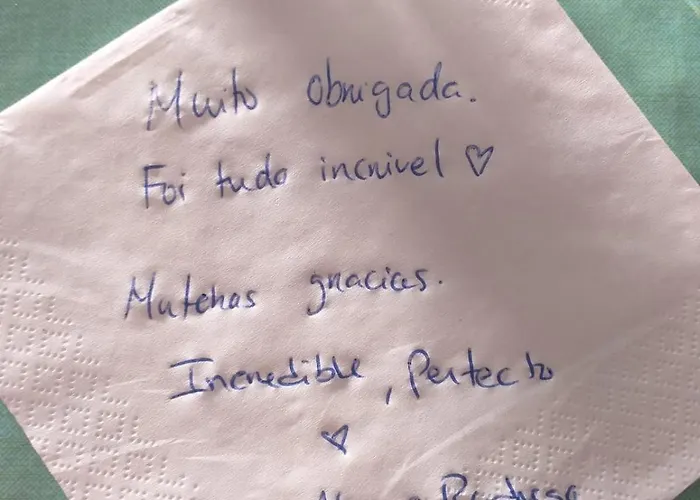 Muito obrigada.
Foi tudo incrivel ♡
Mutchas gracias.
Incredible, Perfecto
♡